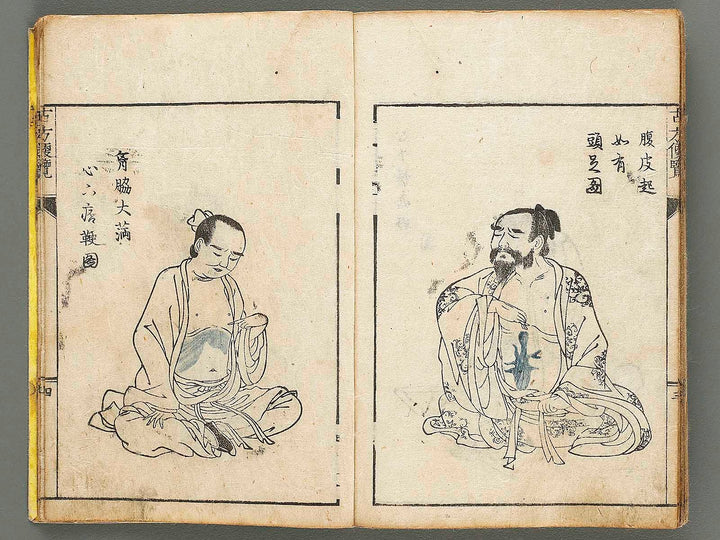 古方便覽
腹皮起
如有
頭足圖
三
胷脇大滿
心下痞鞕圖
古方便覽
四